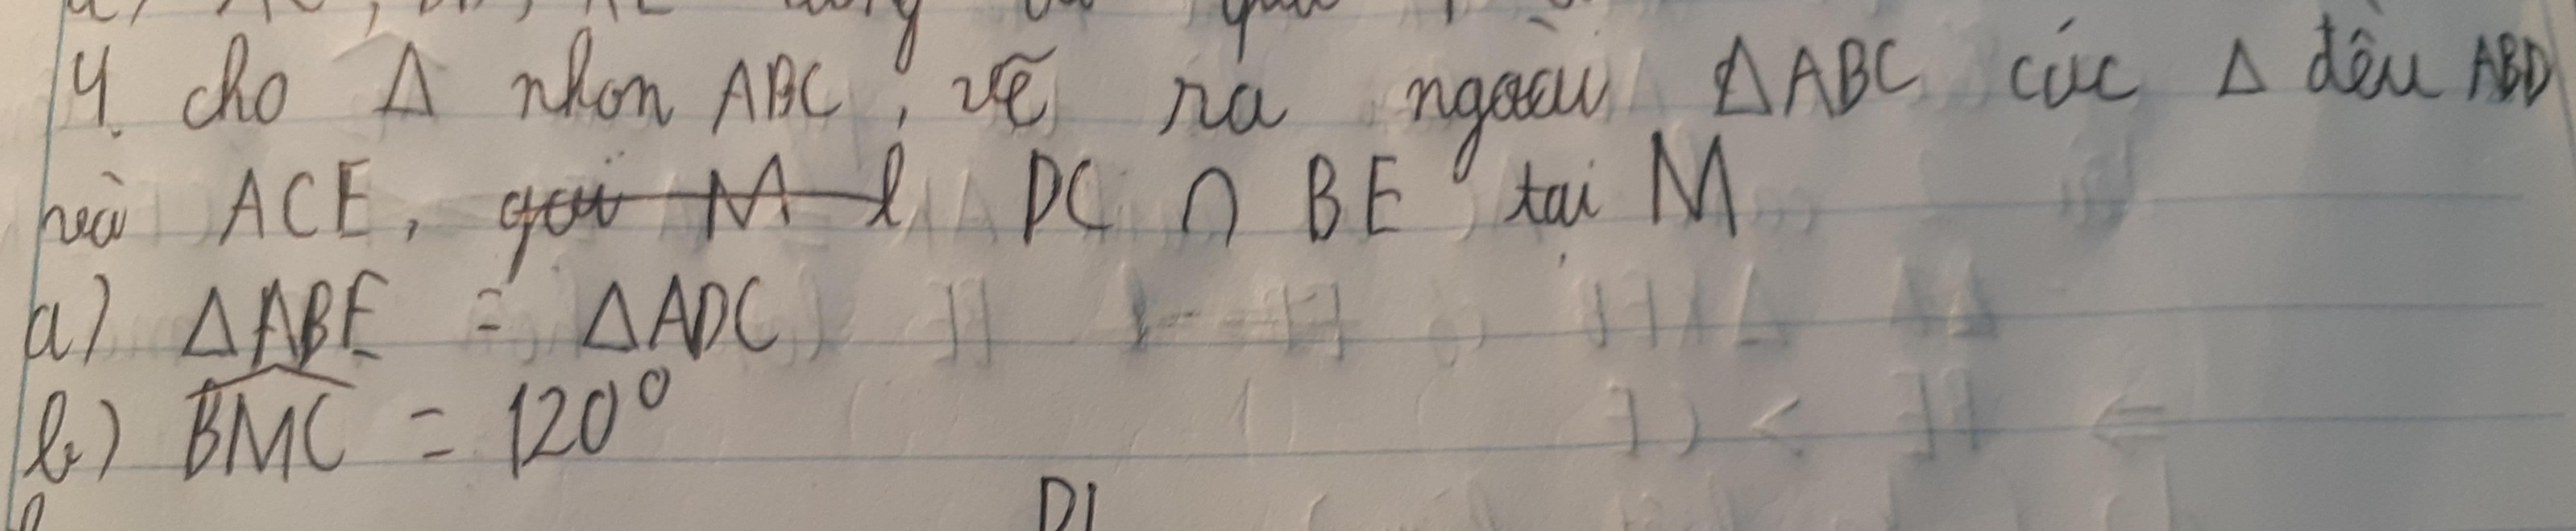 4. cho Δ nhọn ABC, vẽ ra ngoài ΔABC các Δ đều ABD
và ACE, DC ∩ BE tại M
a) ΔABE = ΔADC
b) BMC = 120°